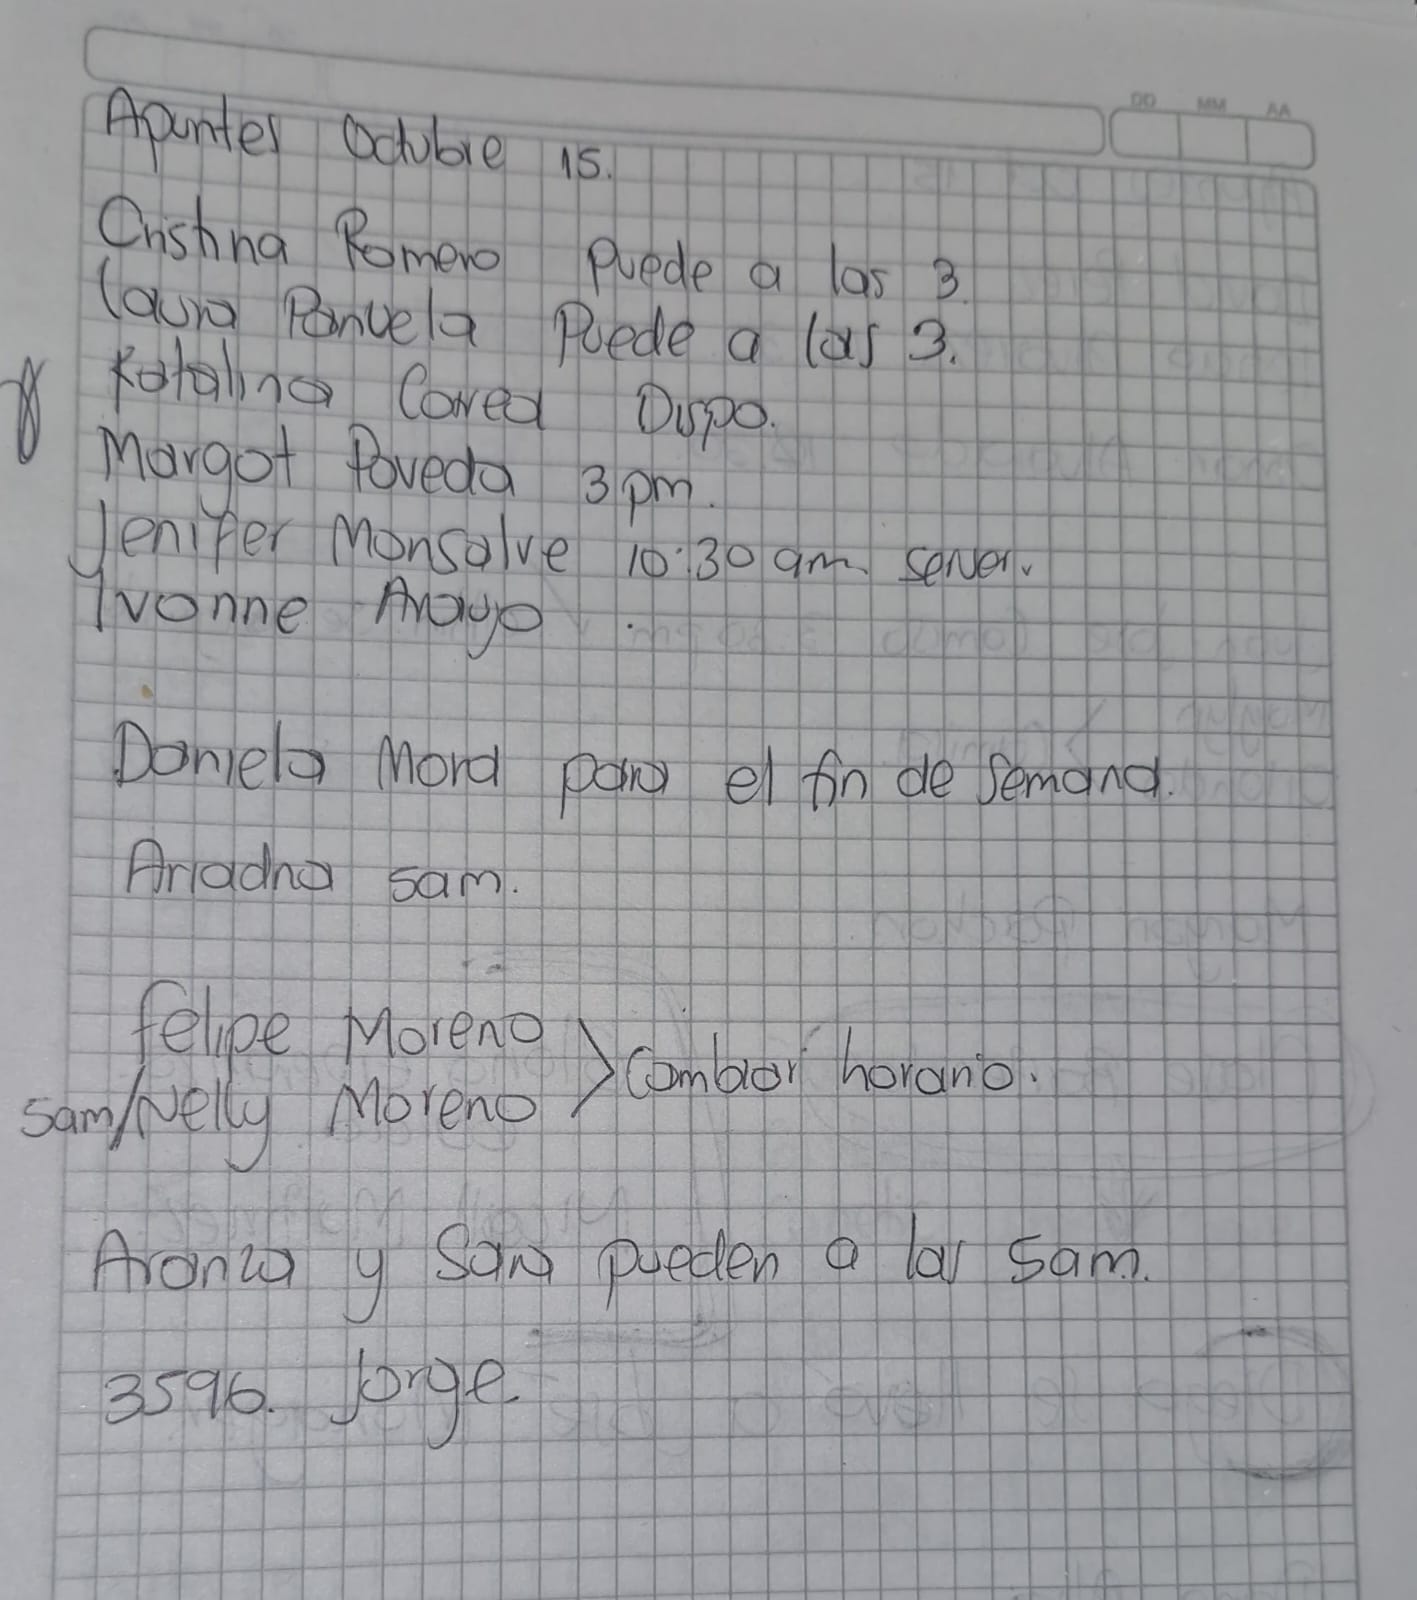 DD MM AA
Apuntes Octubre 15.
Cristina Romero puede a las 3.
Laura Panuela Puede a las 3.
Katalina Correa Dispo.
Margot Poveda 3 pm.
Jenifer Monsalve 10:30 am. server.
Yvonne Araujo .
Daniela Mora para el fin de semana.
Ariadna 5am.
Felipe Moreno
5am/Nelly Moreno > Cambiar horario.
Aranza y Sara pueden a las 5am.
3596. Jorge.